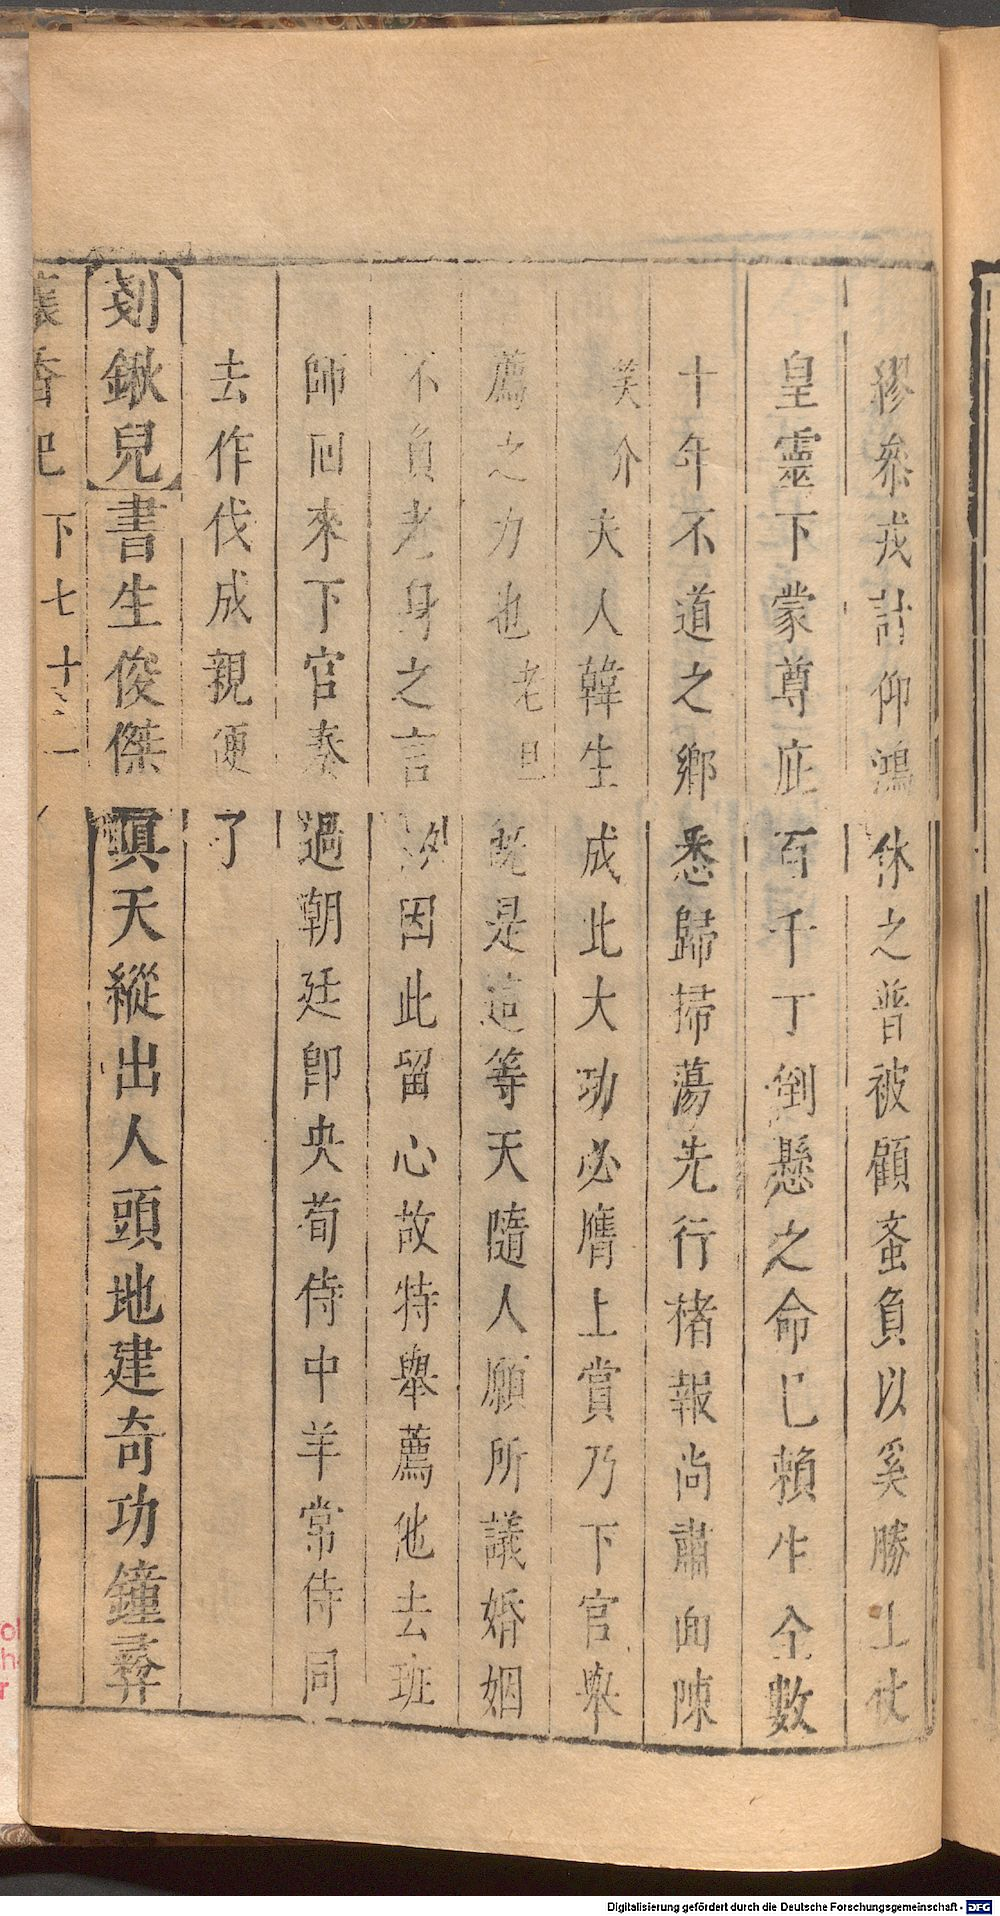 繆叅戎計仰鴻休之普被顧蚉負以奚勝上仗
皇靈下蒙尊庇百千丁倒懸之命已賴生全數
十年不道之鄉悉歸掃蕩先行楮報尚肅面陳
笑介夫人韓生成此大功必膺上賞乃下官舉
薦之力也老旦旣是這等天隨人願所議婚姻
不負老身之言外因此留心故特舉薦他去班
師囘來下官奏過朝廷卽央荀侍中羊常侍同
去作伐成親便了
剗鍬兒書生俊傑眞天縱出人頭地建奇功鐘彛
懷香記 下 七十二
Digitalisierung gefördert durch die Deutsche Forschungsgemeinschaft - DFG